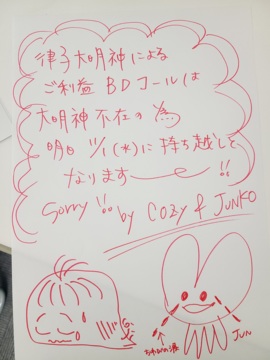 律子大明神による
ご利益 BDコールは
大明神不在の為
明日 11/1(*)に持ち越しと
なります !!
Sorry !! by COZY & JUNKO
JUN